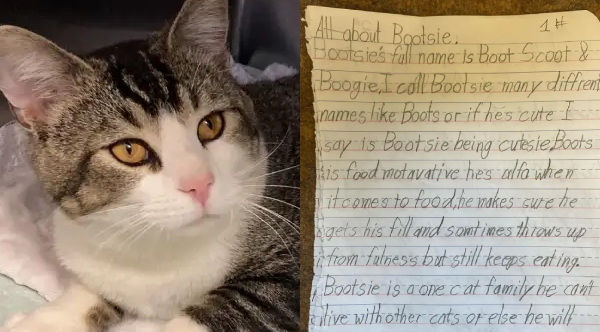 All about Bootsie. 1#
Bootsie's full name is Boot Scoot &
Boogie, I call Bootsie many diffrent
names like Boots or if hes cute I
say is Bootsie being cutsie, Boots
is food motavative hes alfa when
it comes to food, he makes sure he
gets his fill and somtimes throws up
from fulness but still keeps eating.
Bootsie is a one cat family he can't
live with other cats or else he will